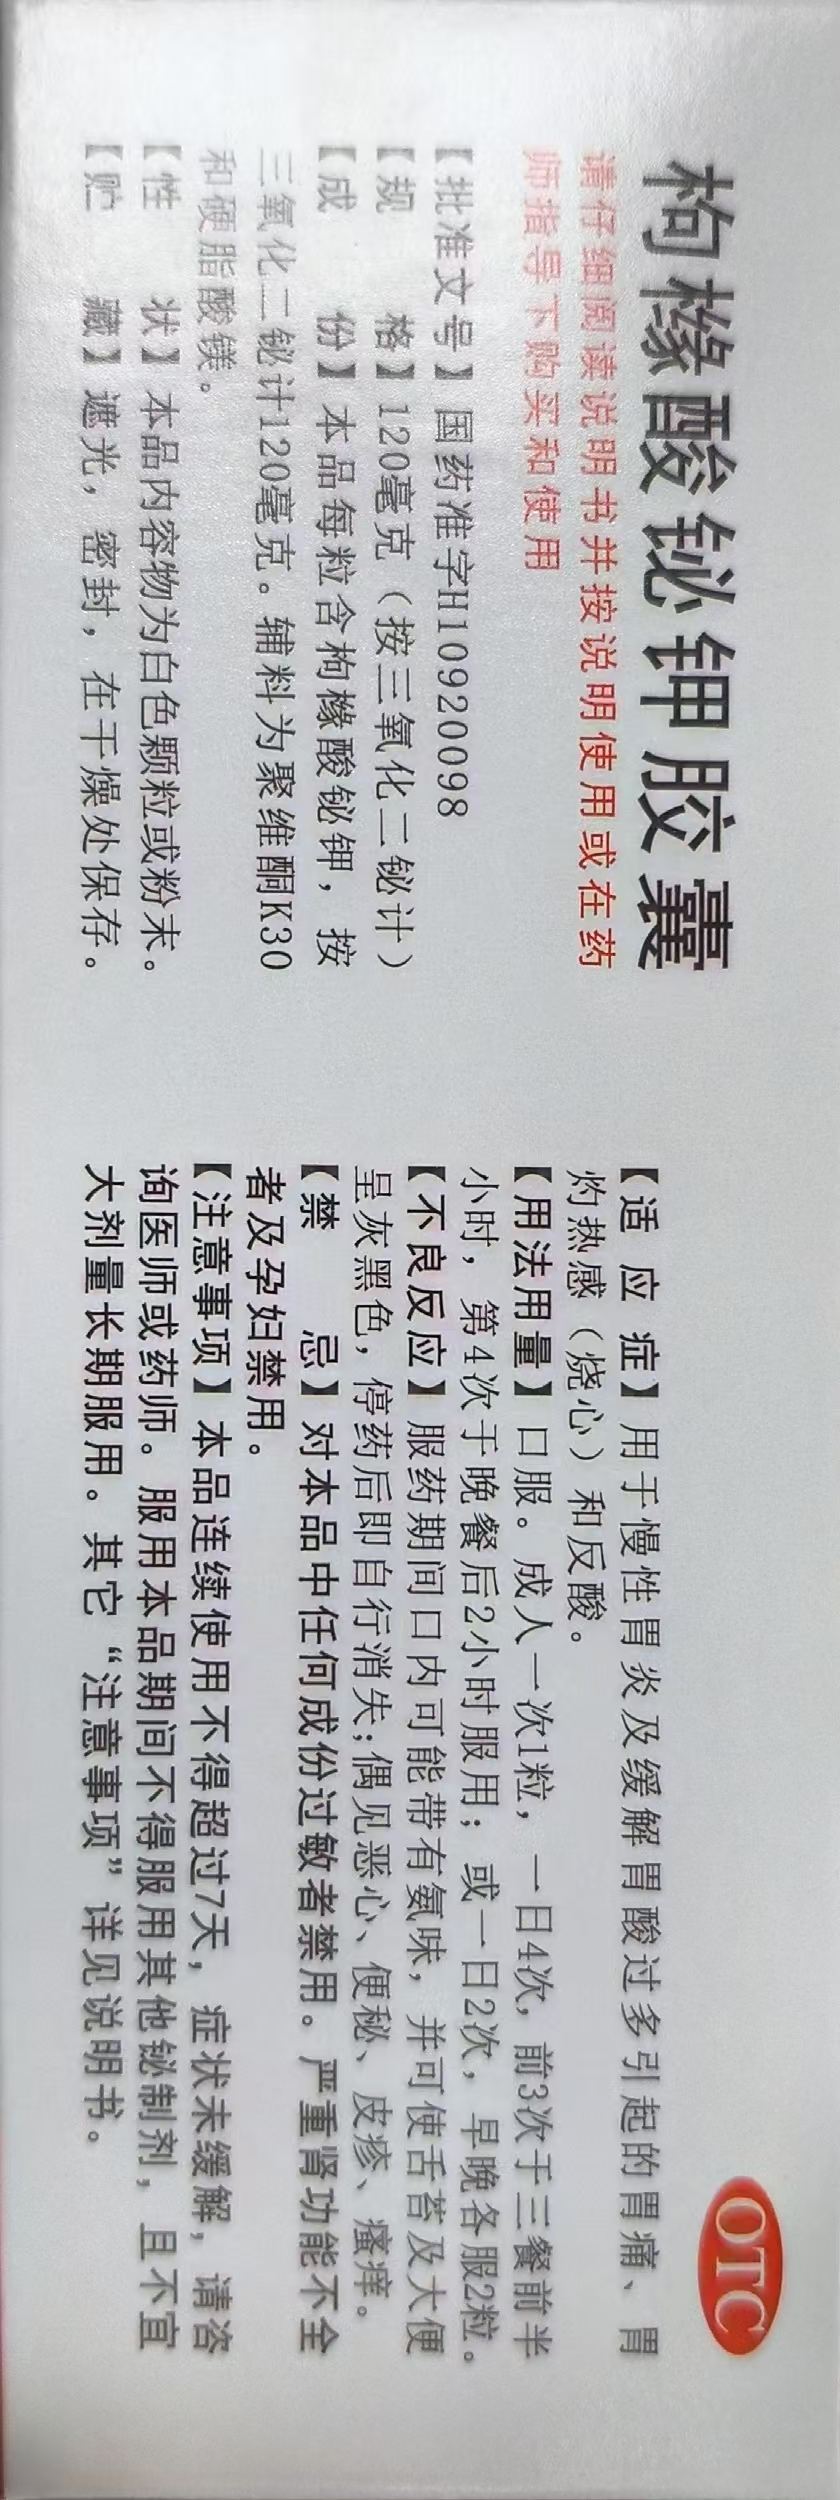 枸橼酸铋钾胶囊
请仔细阅读说明书并按说明使用或在药
师指导下购买和使用
【批准文号】国药准字H10920098
【规　　格】120毫克（按三氧化二铋计）
【成　　份】本品每粒含枸橼酸铋钾，按
三氧化二铋计120毫克。辅料为聚维酮K30
和硬脂酸镁。
【性　　状】本品内容物为白色颗粒或粉末。
【贮　　藏】遮光，密封，在干燥处保存。
OTC
【适 应 症】用于慢性胃炎及缓解胃酸过多引起的胃痛、胃
灼热感（烧心）和反酸。
【用法用量】口服。成人一次1粒，一日4次，前3次于三餐前半
小时，第4次于晚餐后2小时服用；或一日2次，早晚各服2粒。
【不良反应】服药期间口内可能带有氨味，并可使舌苔及大便
呈灰黑色，停药后即自行消失；偶见恶心、便秘、皮疹、瘙痒。
【禁　　忌】对本品中任何成份过敏者禁用。严重肾功能不全
者及孕妇禁用。
【注意事项】本品连续使用不得超过7天，症状未缓解，请咨
询医师或药师。服用本品期间不得服用其他铋制剂，且不宜
大剂量长期服用。其它“注意事项”详见说明书。